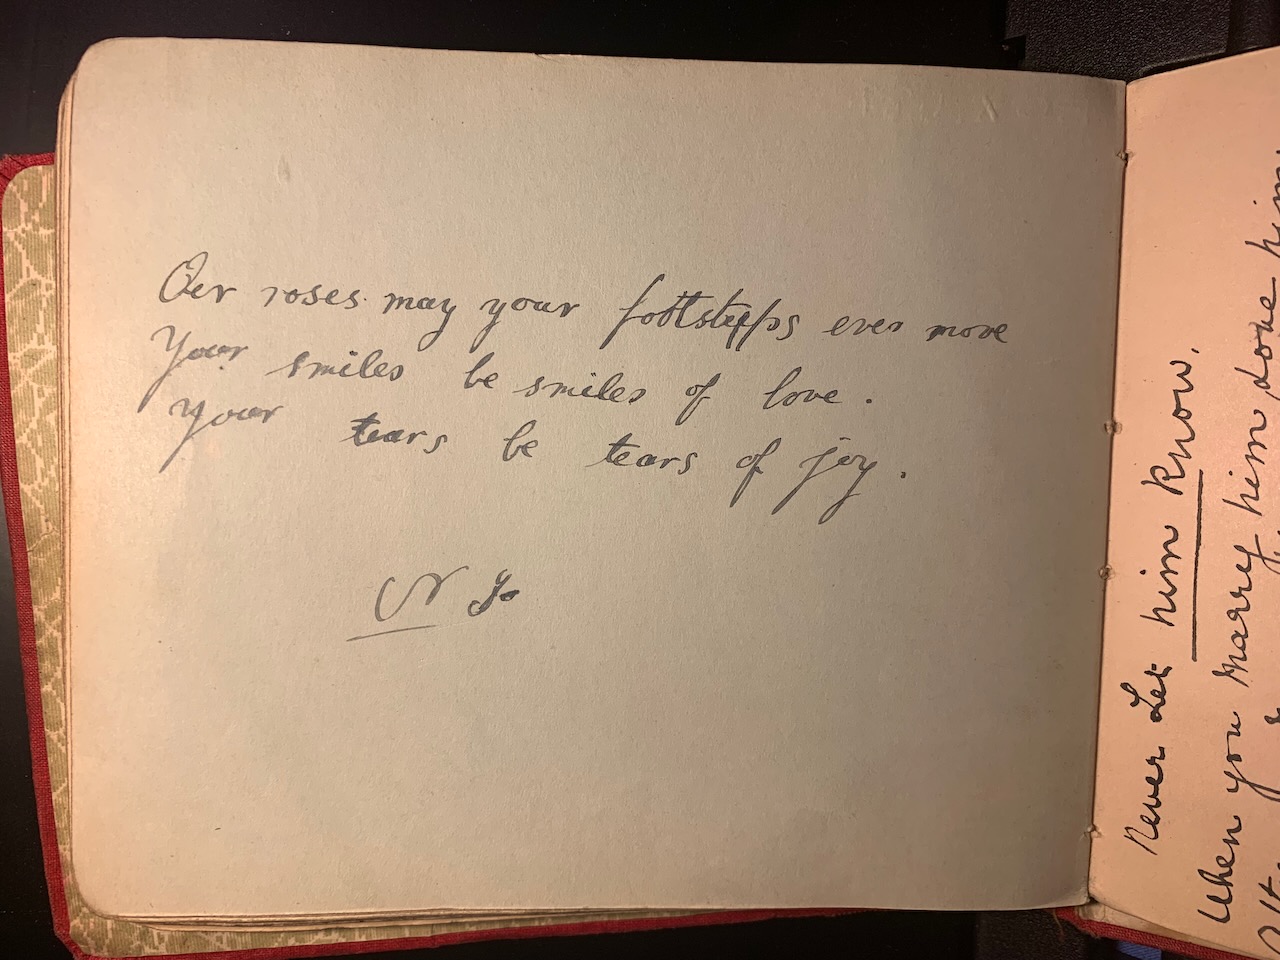 Oer roses may your footstepps ever move
Your smiles be smiles of love.
Your tears be tears of joy.
Never Let him know.
When you marry him love him